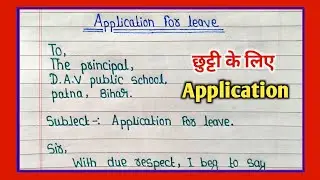 Application for leave
To,
The principal,
D.A.V public school,
patna, Bihar.
Subject-: Application for leave.
Sir,
With due respect, I beg to say
छुट्टी के लिए
Application